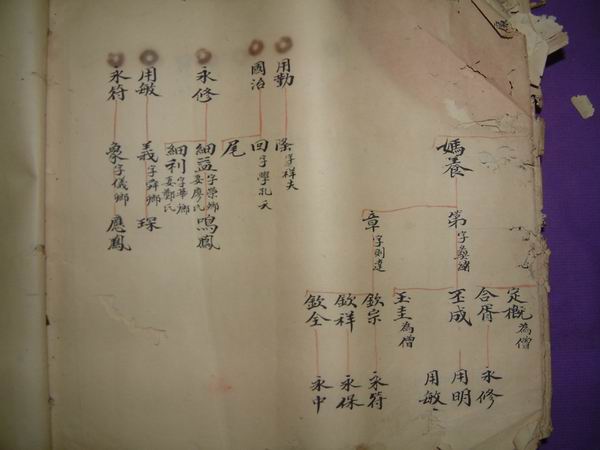 媽養
第字桑緒
章字則達
定概為僧
合胥
玉成
玉圭為僧
欽宗
欽祥
欽全
永修
用明
用敏
永符
永保
永中
用勤
隆字祥夫
國治
回字學孔天
尾
永修
細益字榮鄉妾廖氏鳴鳳
細利字華鄉妾鄭氏
用敏
義字舜鄉
琛
永符
象字儀鄉應鳳